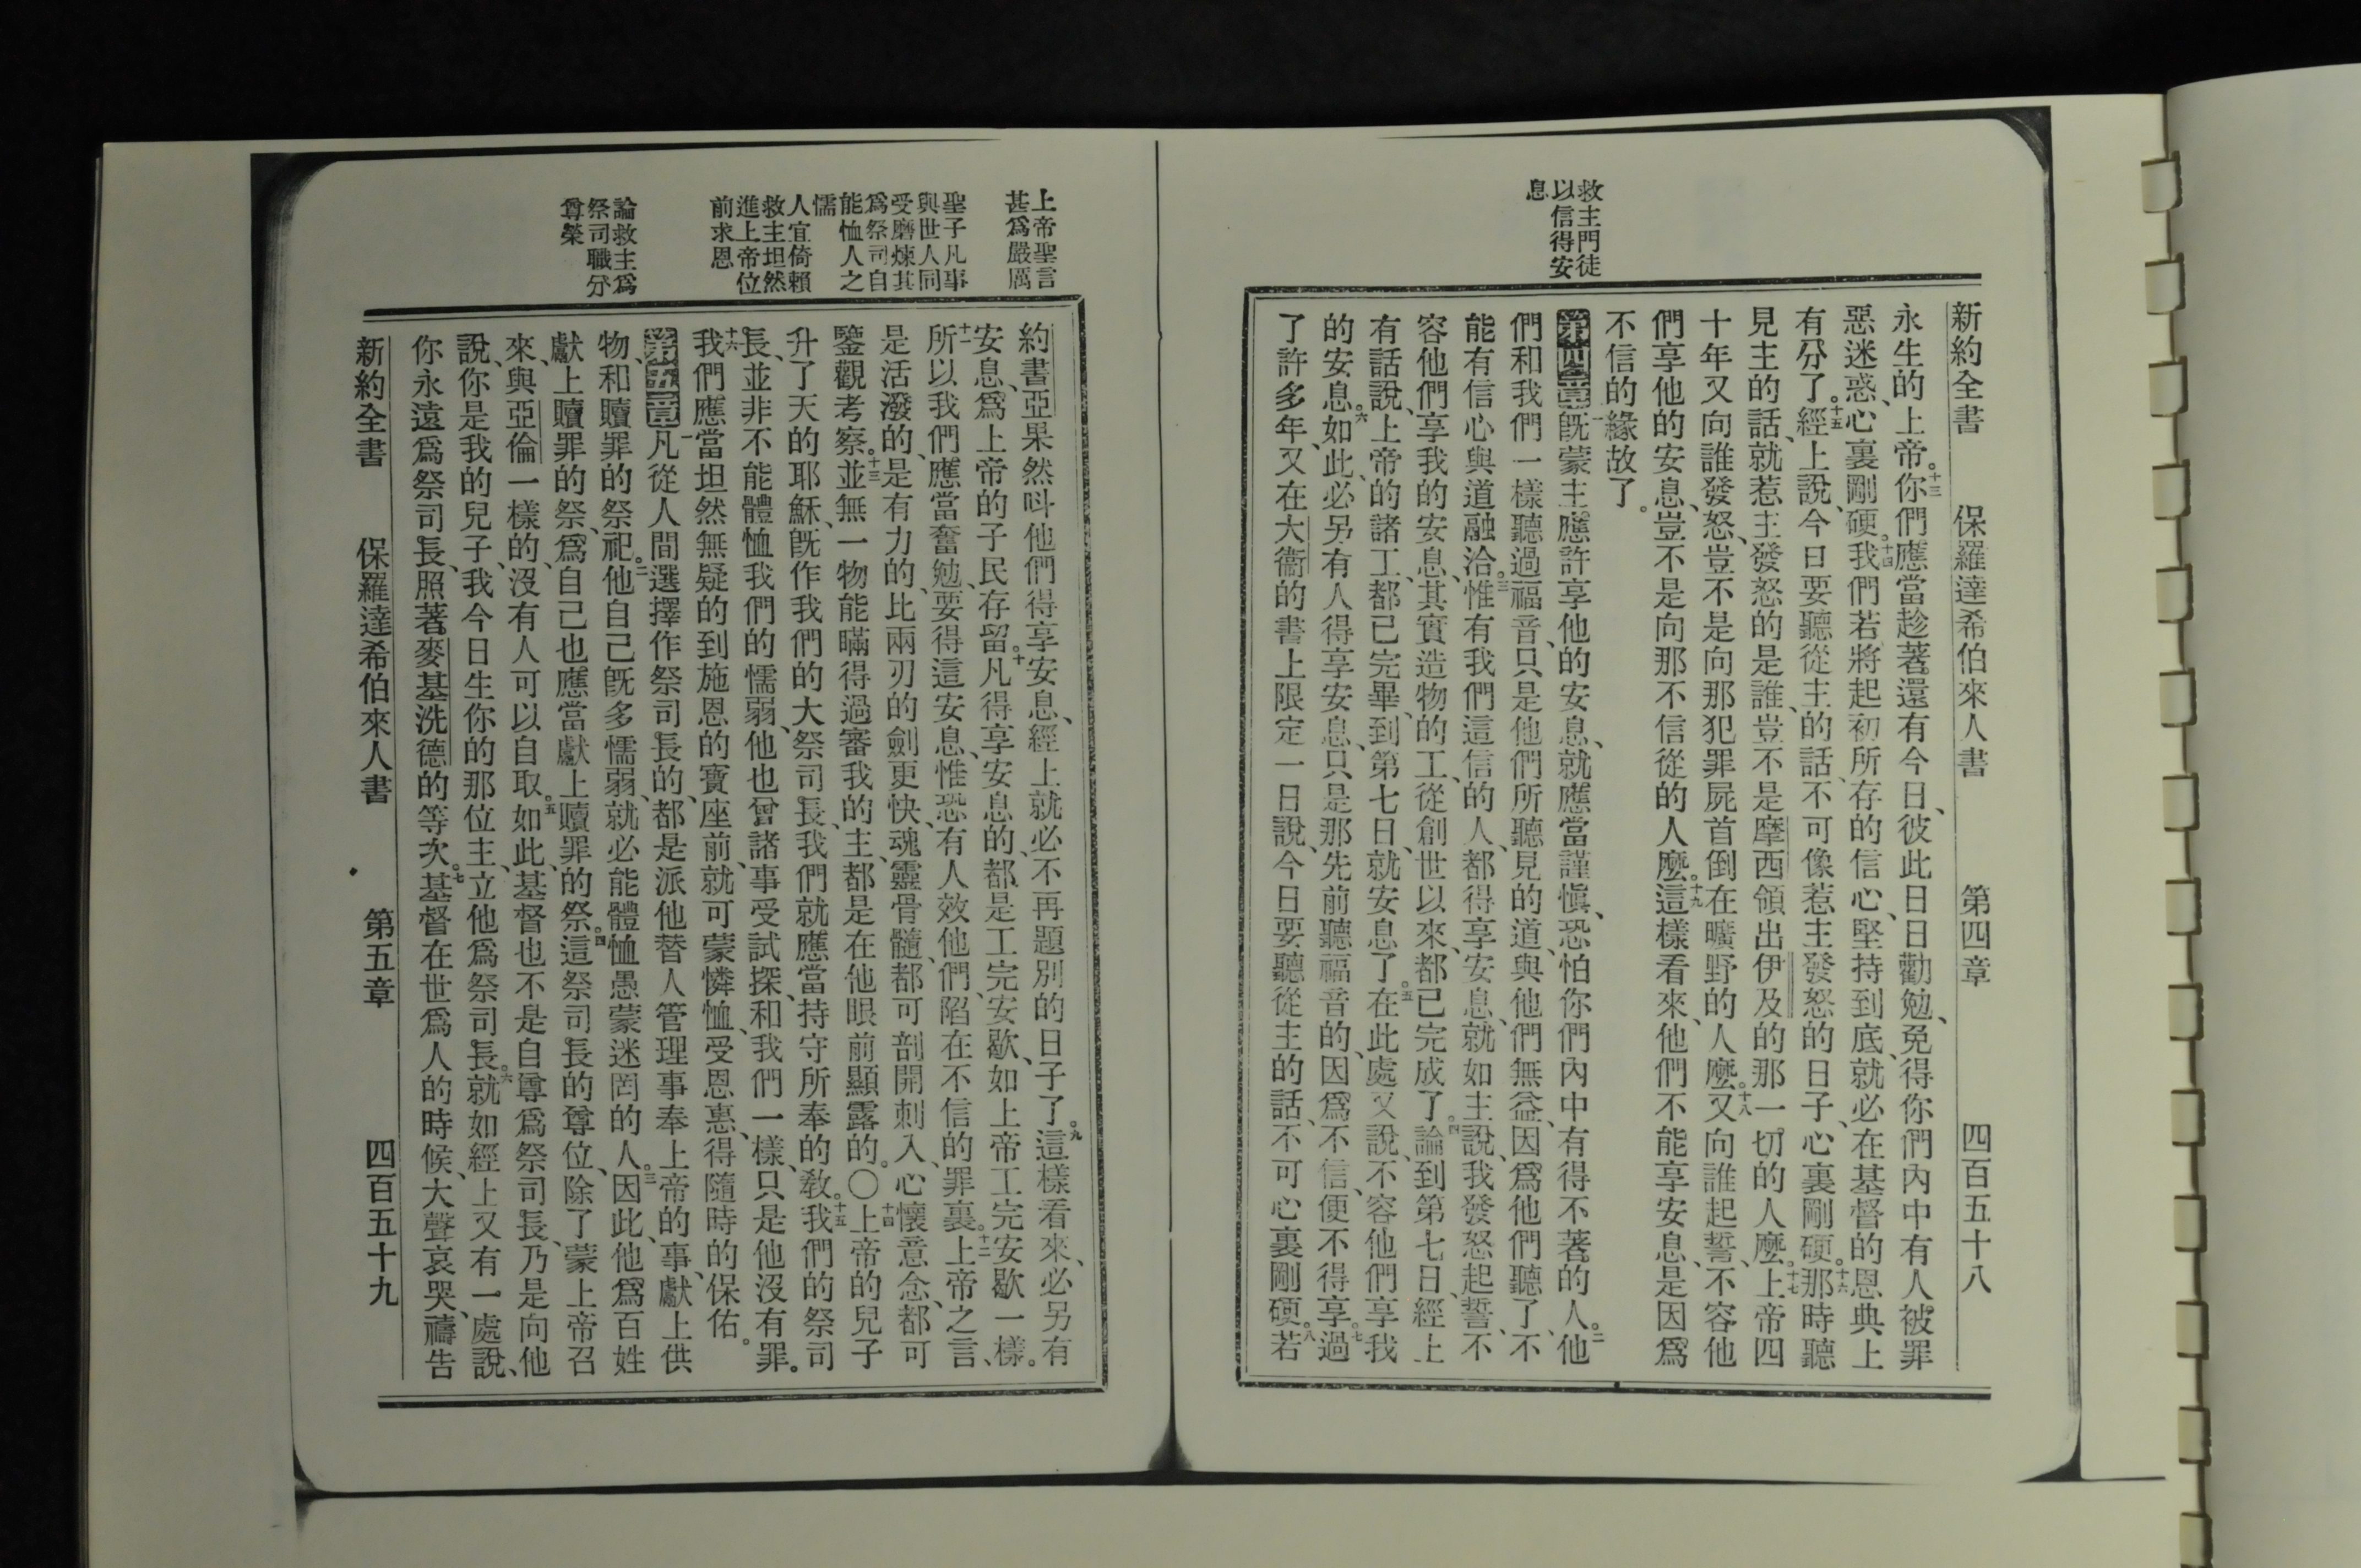 救主門徒
以信得安
息
新約全書 保羅達希伯來人書 第四章 四百五十八
永生的上帝。十三你們應當趁著還有今日、彼此日日勸勉、免得你們內中有人被罪
惡迷惑、心裏剛硬。十四我們若將起初所存的信心、堅持到底、就必在基督的恩典上
有分了。十五經上說、今日要聽從主的話、不可像惹主發怒的日子、心裏剛硬。十六那時聽
見主的話、就惹主發怒的是誰、豈不是摩西領出伊及的那一切的人麼。十七上帝四
十年又向誰發怒、豈不是向那犯罪屍首倒在曠野的人麼。十八又向誰起誓、不容他
們享他的安息、豈不是向那不信從的人麼。十九這樣看來、他們不能享安息、是因爲
不信的緣故了。
第四章一旣蒙主應許享他的安息、就應當謹愼、恐怕你們內中有得不著的人。二他
們和我們一樣聽過福音、只是他們所聽見的道、與他們無益、因爲他們聽了、不
能有信心與道融洽。三惟有我們這信的人、都得享安息、就如主說、我發怒起誓、不
容他們享我的安息、其實造物的工、從創世以來、都已完成了。四論到第七日、經上
有話說、上帝的諸工、都已完畢、到第七日、就安息了。五在此處又說、不容他們享我
的安息。六如此、必另有人得享安息、只是那先前聽福音的、因爲不信、便不得享。七過
了許多年、又在大衞的書上限定一日說、今日要聽從主的話、不可心裏剛硬。八若
上帝聖言
甚爲嚴厲
聖子凡事
與世人同
受磨煉其
爲祭司自
能恤人之
懦
人宜倚賴
救主坦然
進上帝位
前求恩
論救主爲
祭司職分
尊榮
約書亞果然呌他們得享安息、經上就必不再題別的日子了。九這樣看來、必另有
安息、爲上帝的子民存留。十凡得享安息的、都是工完安歇、如上帝工完安歇一樣。
十一所以我們應當奮勉、要得這安息、惟恐有人效他們、陷在不信的罪裏。十二上帝之言、
是活潑的、是有力的、比兩刃的劍更快、魂靈骨髓、都可剖開刺入、心懷意念、都可
鑒觀考察。十三並無一物能瞞得過審我的主、都是在他眼前顯露的。〇十四上帝的兒子
升了天的耶穌、旣作我們的大祭司長、我們就應當持守所奉的敎。十五我們的祭司
長、並非不能體恤我們的懦弱、他也曾諸事受試探、和我們一樣、只是他沒有罪。
十六我們應當坦然無疑的到施恩的寶座前、就可蒙憐恤、受恩惠、得隨時的保佑。
第五章一凡從人間選擇作祭司長的、都是派他替人管理事奉上帝的事、獻上供
物、和贖罪的祭祀。二他自己旣多懦弱、就必能體恤愚蒙迷罔的人。三因此、他爲百姓
獻上贖罪的祭、爲自己也應當獻上贖罪的祭。四這祭司長的尊位、除了蒙上帝召
來、與亞倫一樣的、沒有人可以自取。五如此、基督也不是自尊爲祭司長、乃是向他
說、你是我的兒子、我今日生你的那位主、立他爲祭司長。六就如經上又有一處說、
你永遠爲祭司長、照著麥基洗德的等次。七基督在世爲人的時候、大聲哀哭、禱告
新約全書 保羅達希伯來人書 第五章 四百五十九